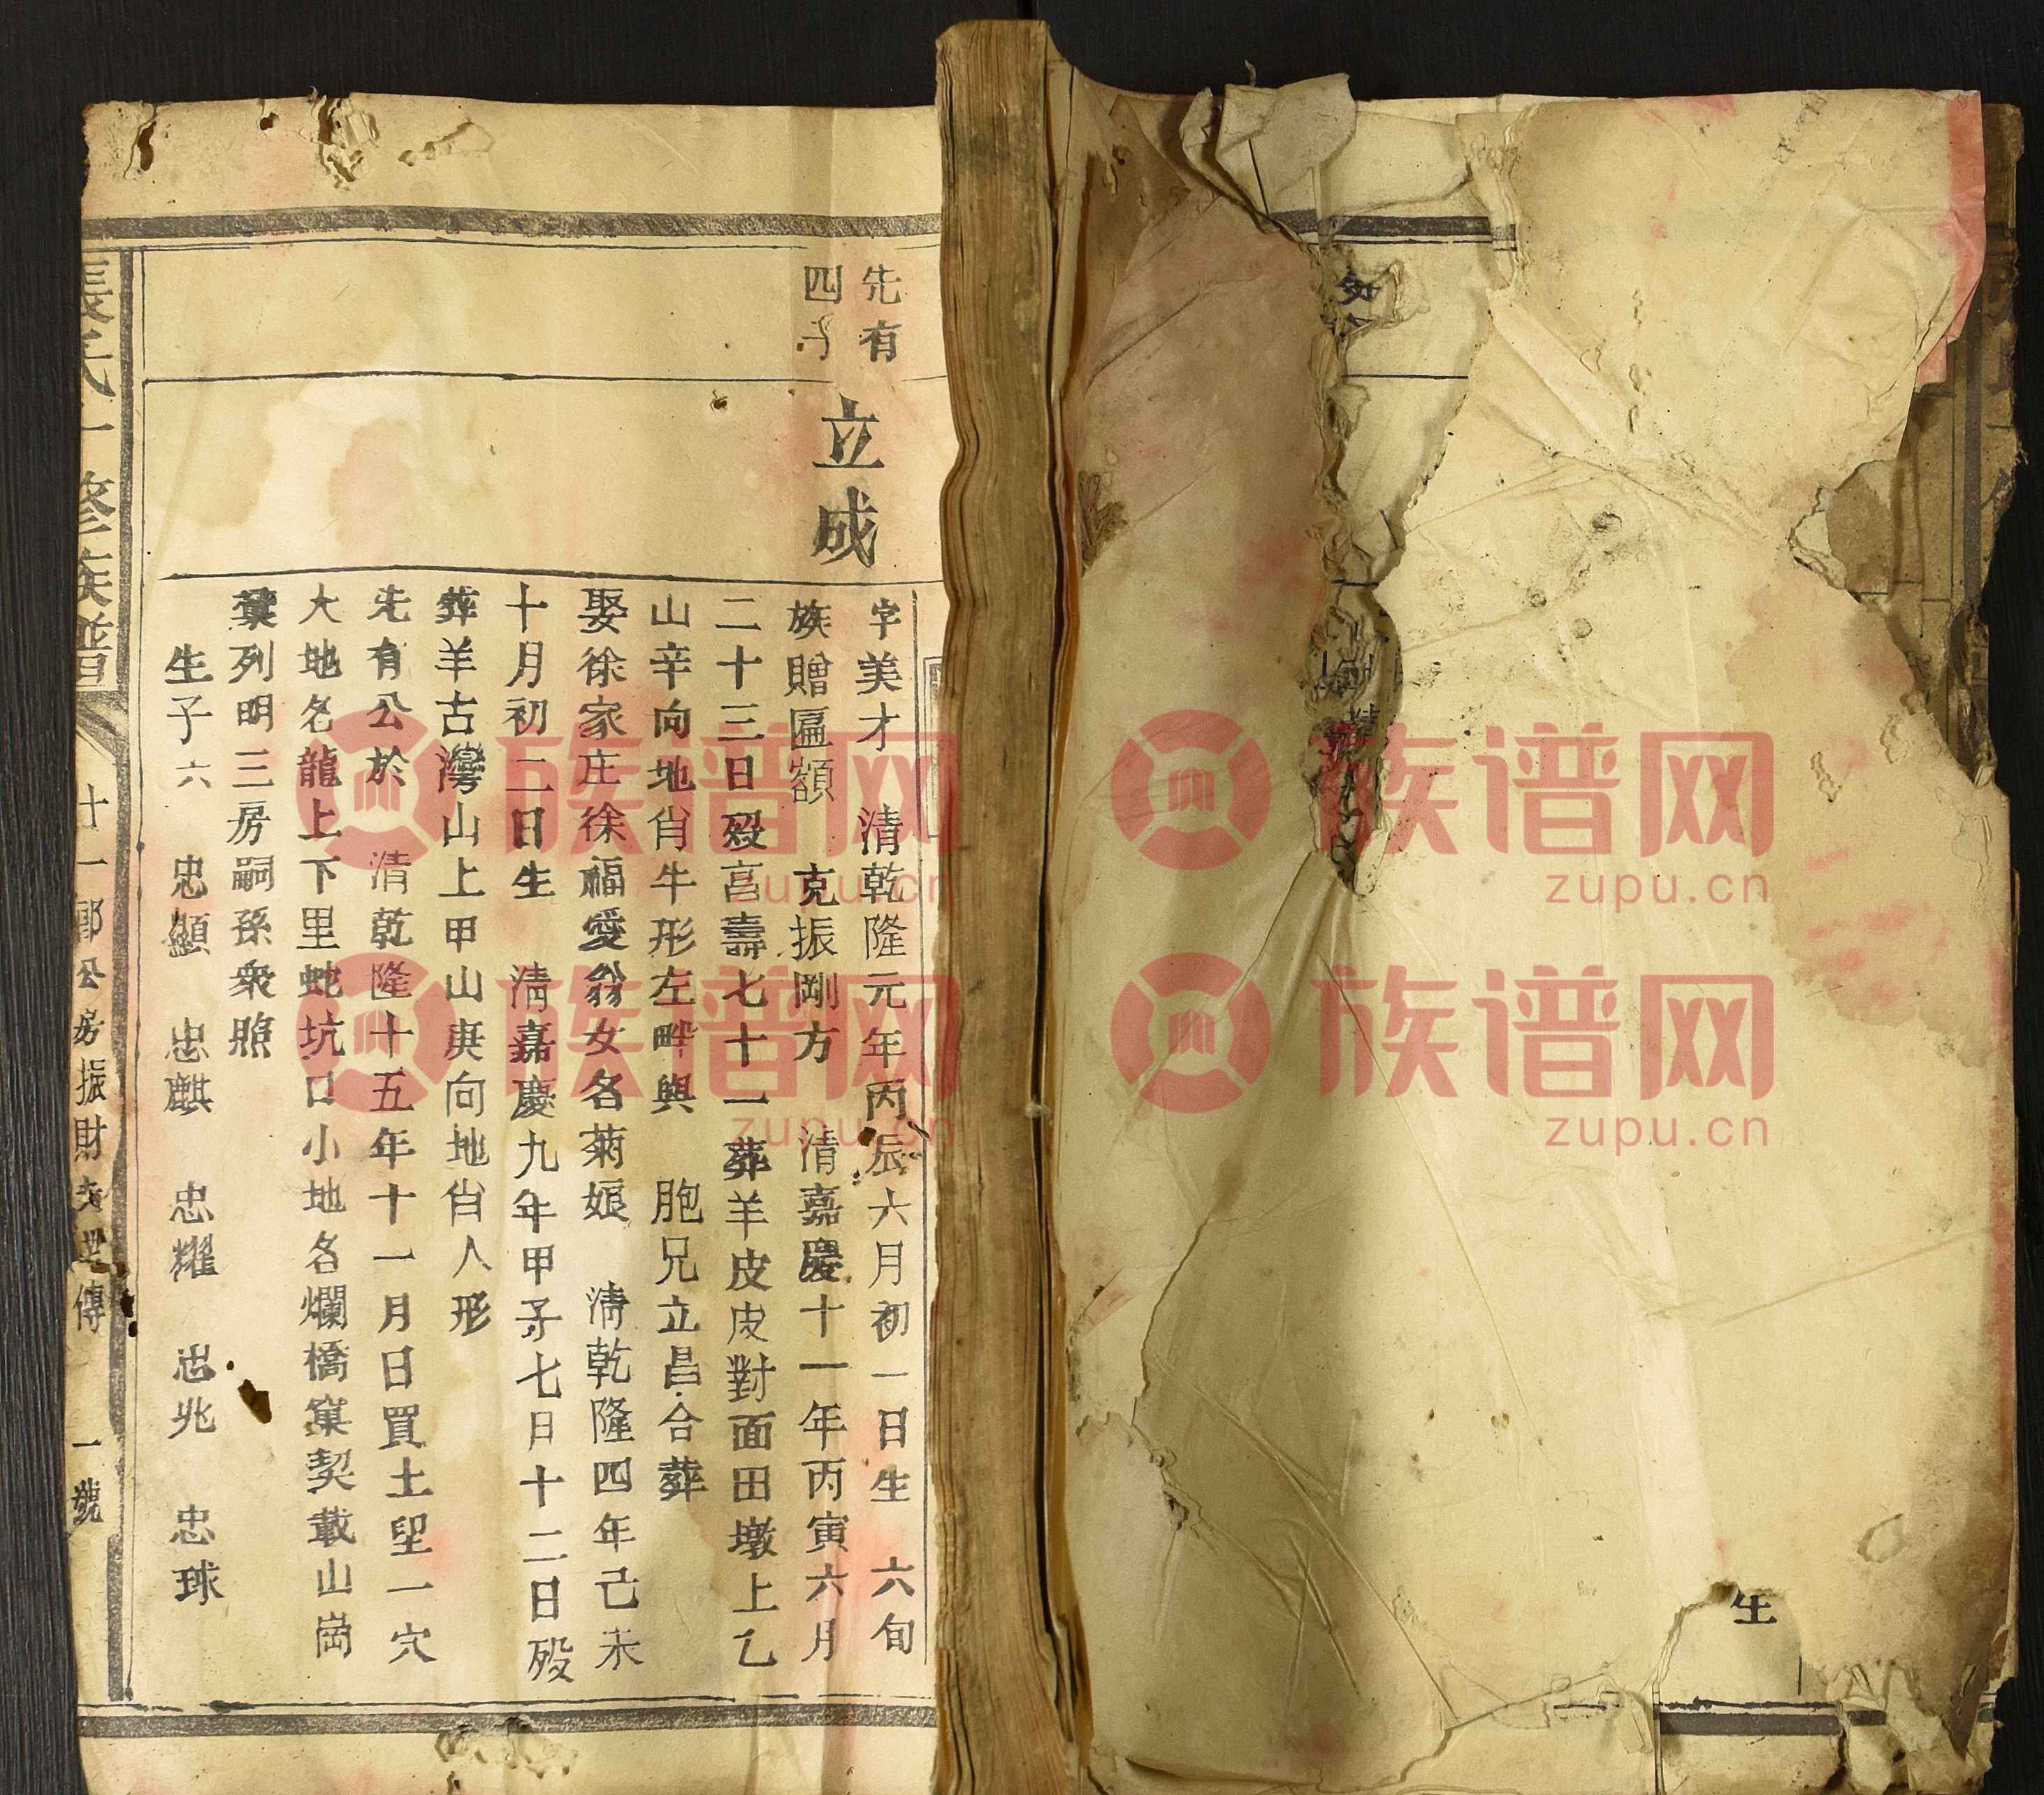 先有
四子
立成
字美才　清乾隆元年丙辰六月初一日生　六旬
族贈匾額　克振剛方　清嘉慶十一年丙寅六月
二十三日殁亯壽七十一葬羊皮皮對面田墩上乙
山辛向地肖牛形左畔與　胞兄立昌合葬
娶徐家庄徐福愛翁女名菊娘　清乾隆四年己未
十月初二日生　清嘉慶九年甲子七月十二日殁
葬羊古灣山上甲山庚向地肖人形
先有公於　清乾隆十五年十一月日買土朢一穴
大地名龍上下里蛇坑口小地名爛橋窠契載山崗
彙列明三房嗣孫衆照
生子六　忠顯　忠麒　忠耀　忠兆　忠球
張氏 修族譜
廿一郎公房振財 世傳　一號
生
族谱网
zupu.cn
族谱网
zupu.cn
族谱网
zupu.cn
族谱网
zupu.cn